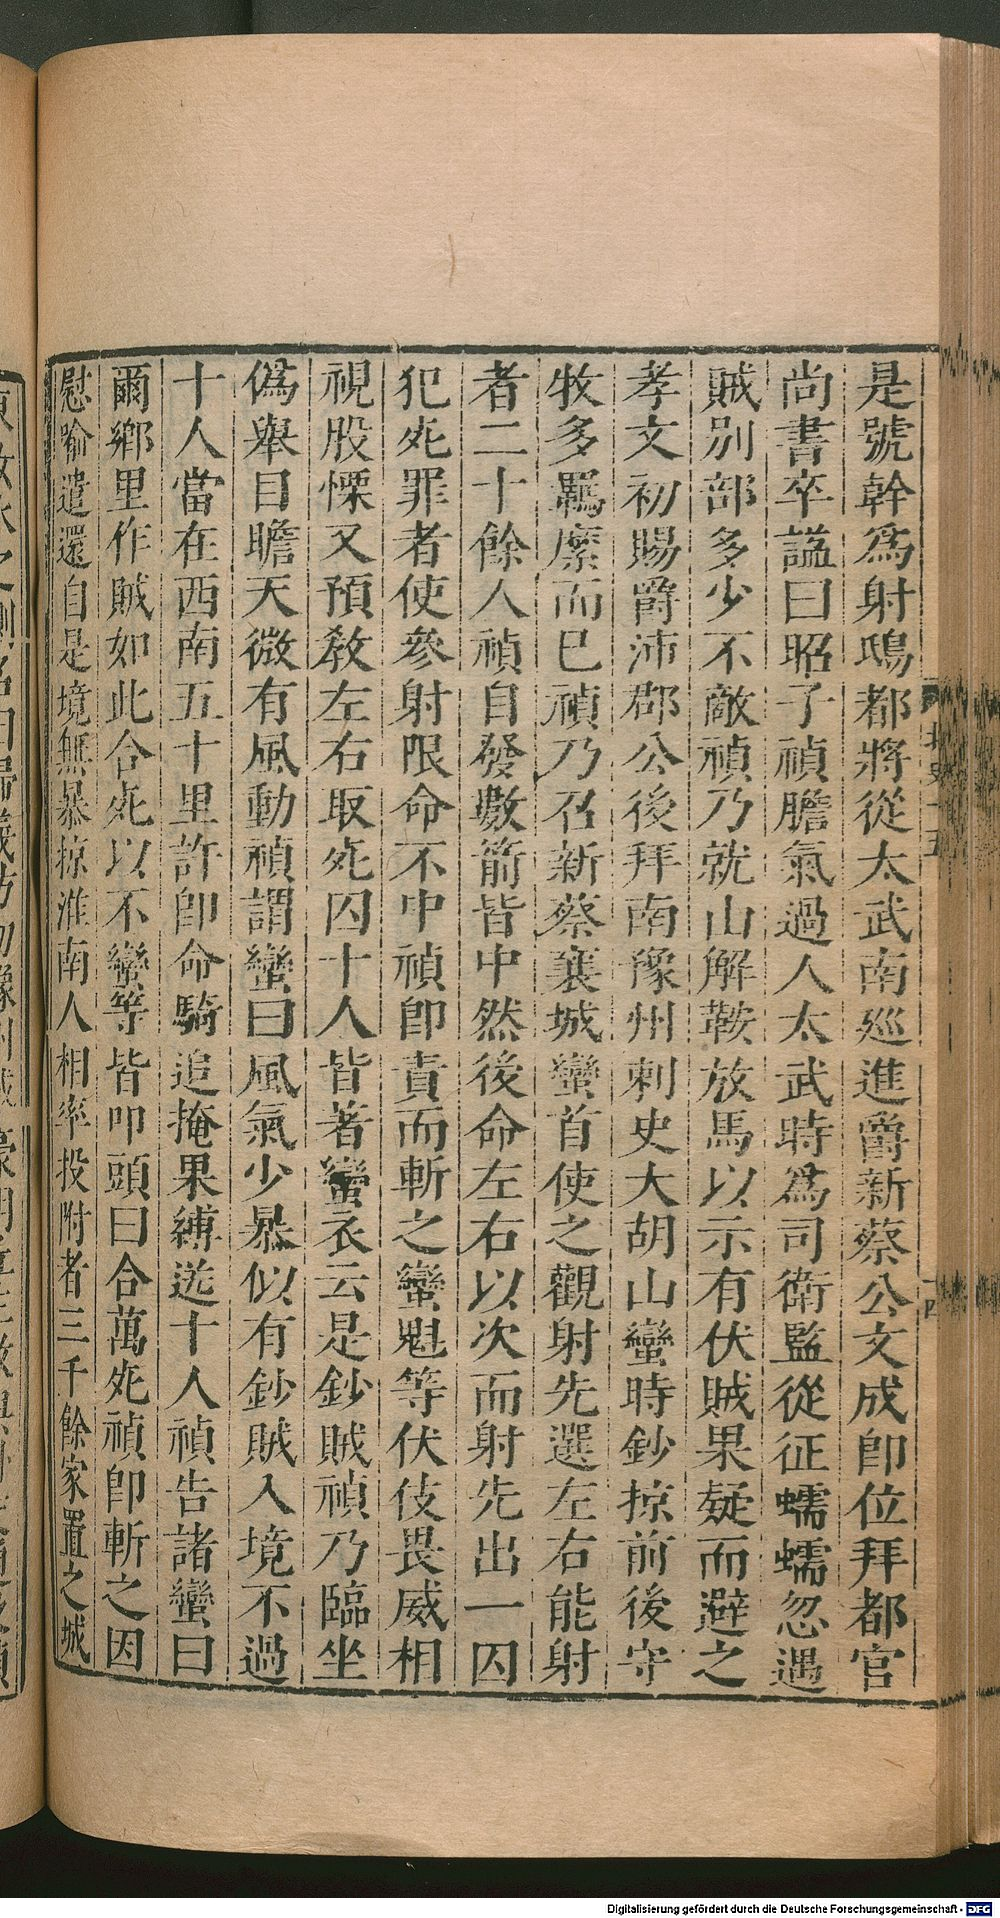 是號幹爲射鴟都將從太武南巡進爵新蔡公文成卽位拜都官
尚書卒謚曰昭子禎膽氣過人太武時爲司衛監從征蠕蠕忽遇
賊別部多少不敵禎乃就山解鞍放馬以示有伏賊果疑而避之
孝文初賜爵沛郡公後拜南豫州刺史大胡山蠻時鈔掠前後守
牧多羈縻而已禎乃召新蔡襄城蠻首使之觀射先選左右能射
者二十餘人禎自發數箭皆中然後命左右以次而射先出一囚
犯死罪者使參射限命不中禎卽責而斬之蠻魁等伏伎畏威相
視股慄又預敎左右取死囚十人皆著蠻衣云是鈔賊禎乃臨坐
偽舉目瞻天微有風動禎謂蠻曰風氣少暴似有鈔賊入境不過
十人當在西南五十里許卽命騎追掩果縛送十人禎告諸蠻曰
爾鄉里作賊如此合死以不蠻等皆叩頭曰合萬死禎卽斬之因
慰喻遣還自是境無暴掠淮南人相率投附者三千餘家置之城
Digitalisierung gefördert durch die Deutsche Forschungsgemeinschaft - DFG